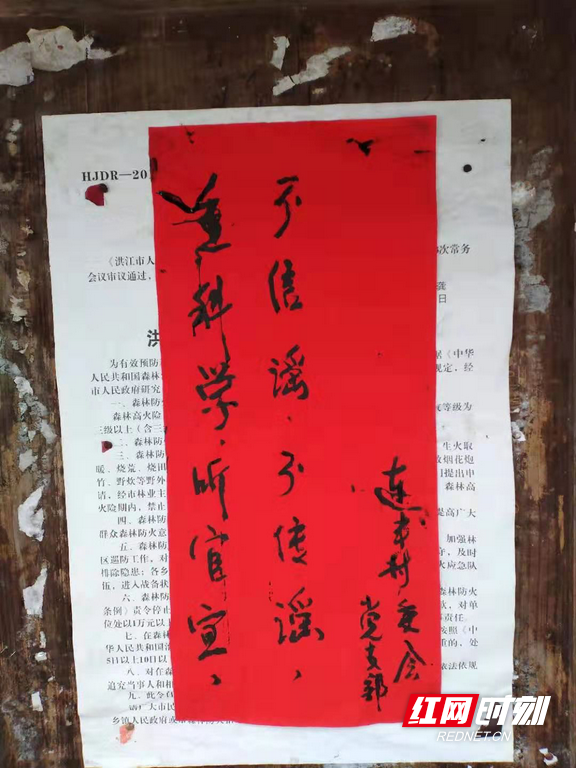 不信谣、不传谣、
重科学、听官宣、
村委会
党支部
HJDR—20
次常务
《洪江市人
会议审议通过,
龚
日
洪
为有效预防
据《中华
人民共和国森林
规定,经
市人民政府研究
一、森林防火
等级为
森林高火险
三级以上(含三
二、森林防
生火取
三、森林防
放烟花炮
暖、烧荒、烧田
提出申
竹、野炊等野外
森林高
请,经市林业主
火险期内,禁止
四、森林防
提高广大
群众森林防火意
五、森林防
加强林
区巡防工作,对
守,及时
排除隐患;各乡
火应急队
伍,进入战备状
六、森林防
森林防火
条例》责令停止
款,对单
位处以1万元以
责任。
七、在森林
按照《中
华人民共和国治
重的,处
5日以上10日以
八、对在森
依法依规
追究当事人和相
九、此令自
乡镇人民政府或
红网时刻
REDNET.CN